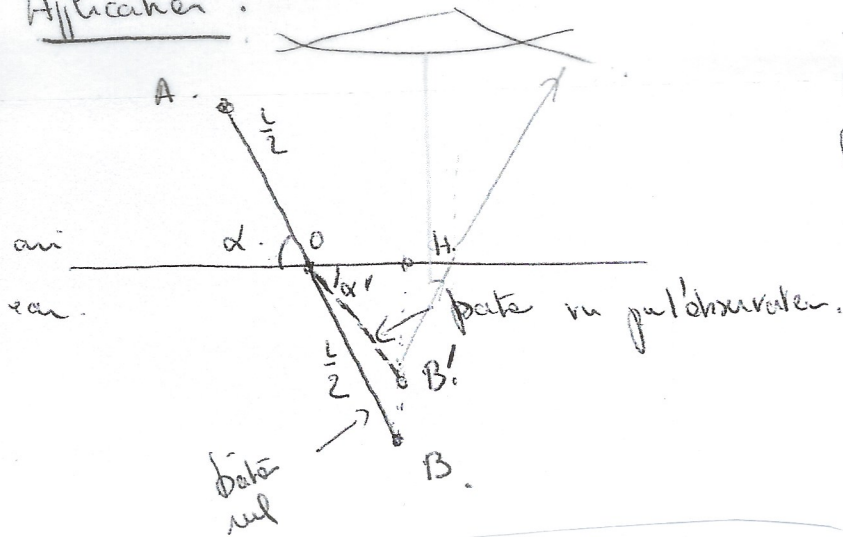 Application :
A.
L/2
air
α.
O
H.
eau.
α'
bâton vu par l'observateur.
L/2
B'.
B.
bâton
réel